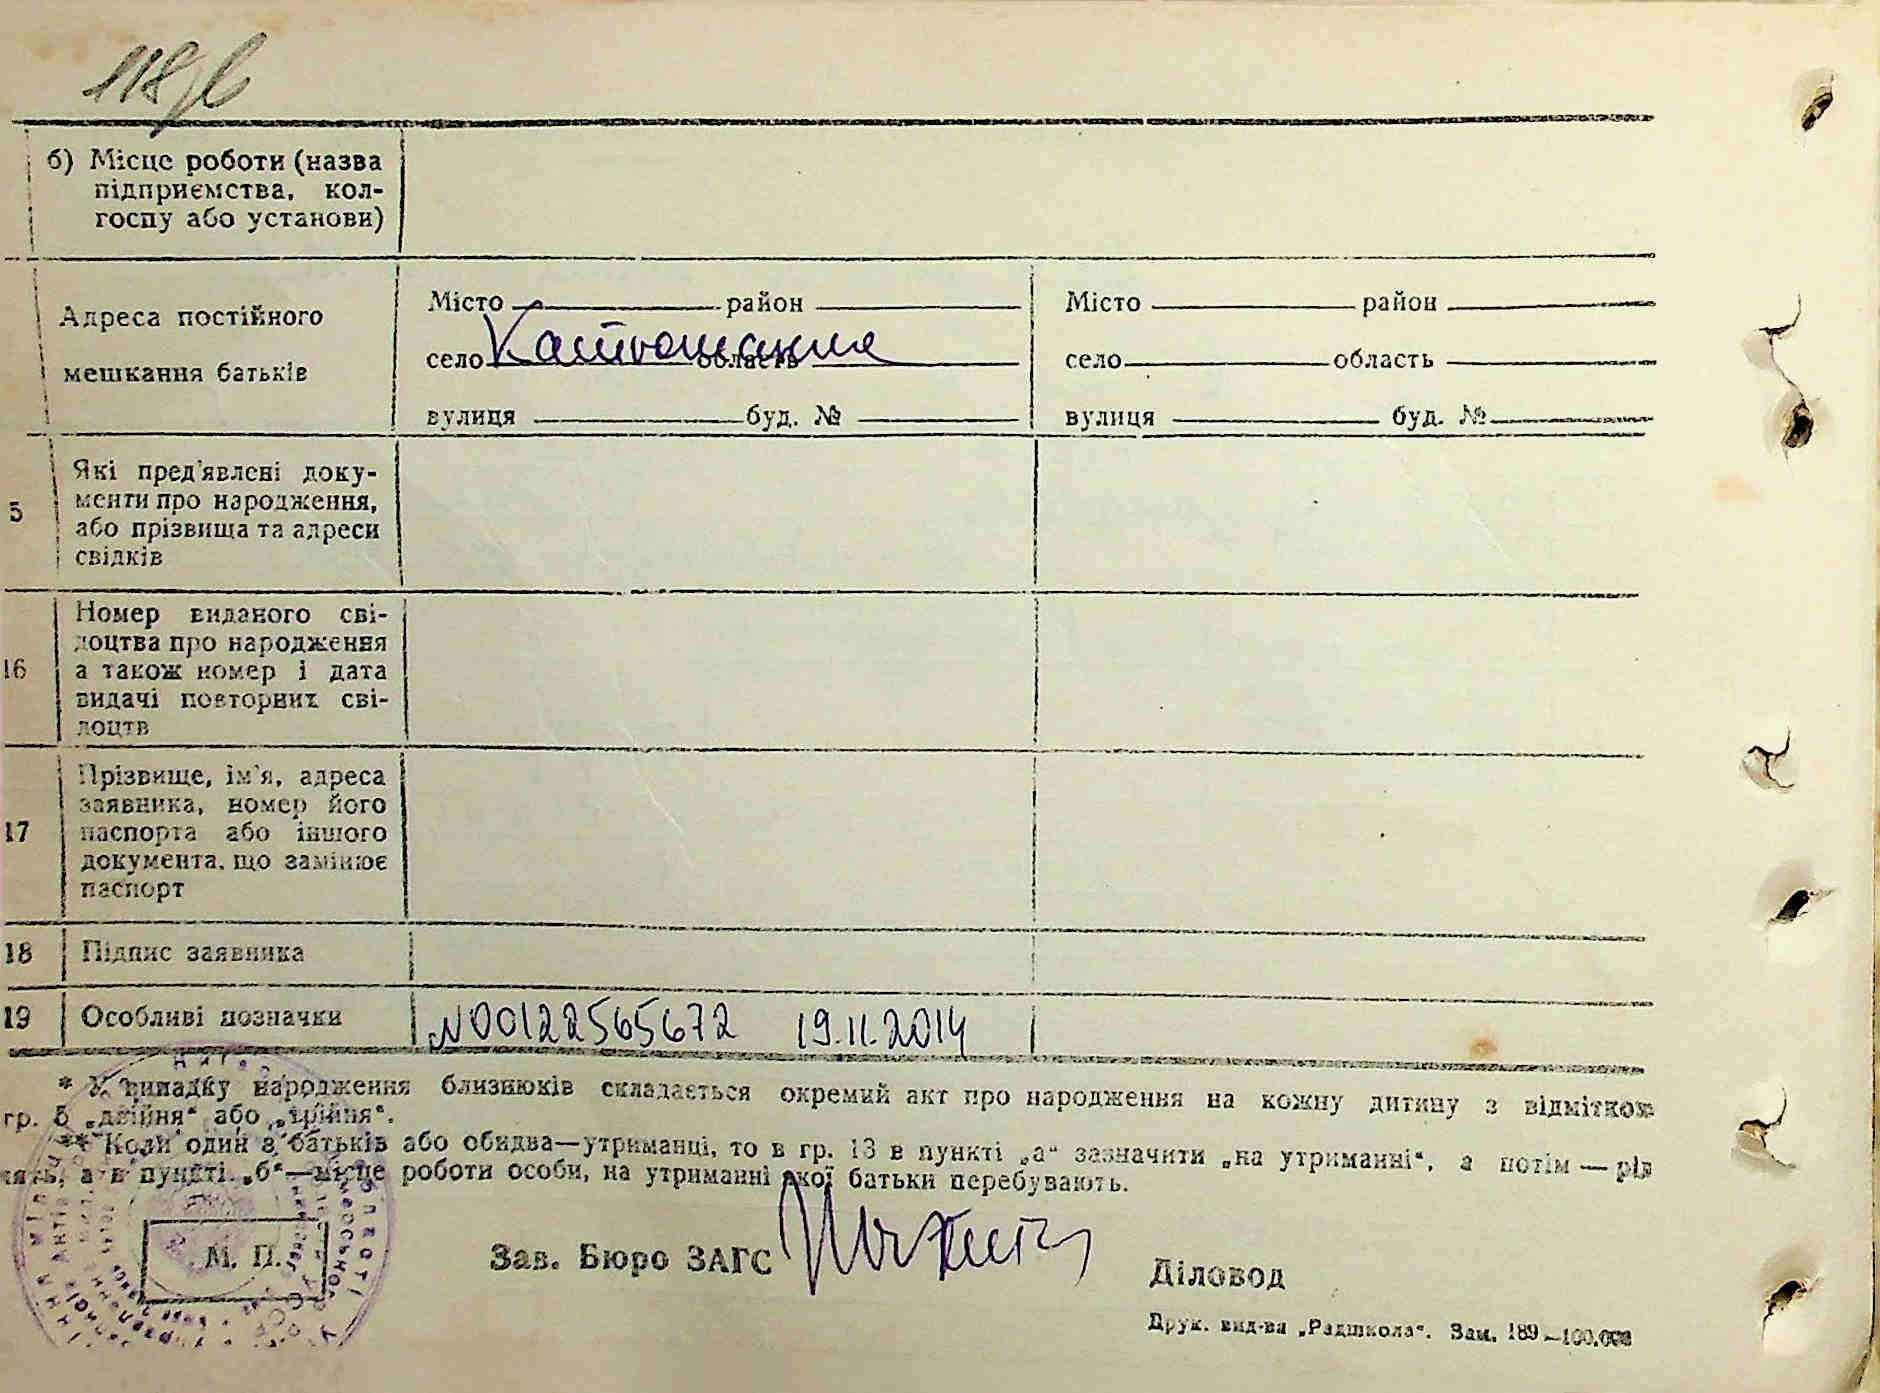 118 б
б) Місце роботи (назва
підприємства, кол-
госпу або установи)
Адреса постійного
мешкання батьків
Місто район
село область
вулиця буд. №
Місто район
село область
вулиця буд. №
5
Які пред'явлені доку-
менти про народження,
або прізвища та адреси
свідків
16
Номер виданого сві-
доцтва про народження
а також номер і дата
видачі повторних сві-
доцтв
17
Прізвище, ім'я, адреса
заявника, номер його
паспорта або іншого
документа, що замінює
паспорт
18 Підпис заявника
19 Особливі позначки N00122565672 19.11.2014
* У випадку народження близнюків складається окремий акт про народження на кожну дитину з відміткою
гр. 5 „двійня“ або „трійня“.
** Коли один з батьків або обидва—утриманці, то в гр. 13 в пункті „а“ зазначити „на утриманні“, а потім — рід
а в пункті „б“—місце роботи особи, на утриманні якої батьки перебувають.
М. П.
Зав. Бюро ЗАГС
Діловод
Друк. вид-ва „Радшкола“. Зам. 189—100.000